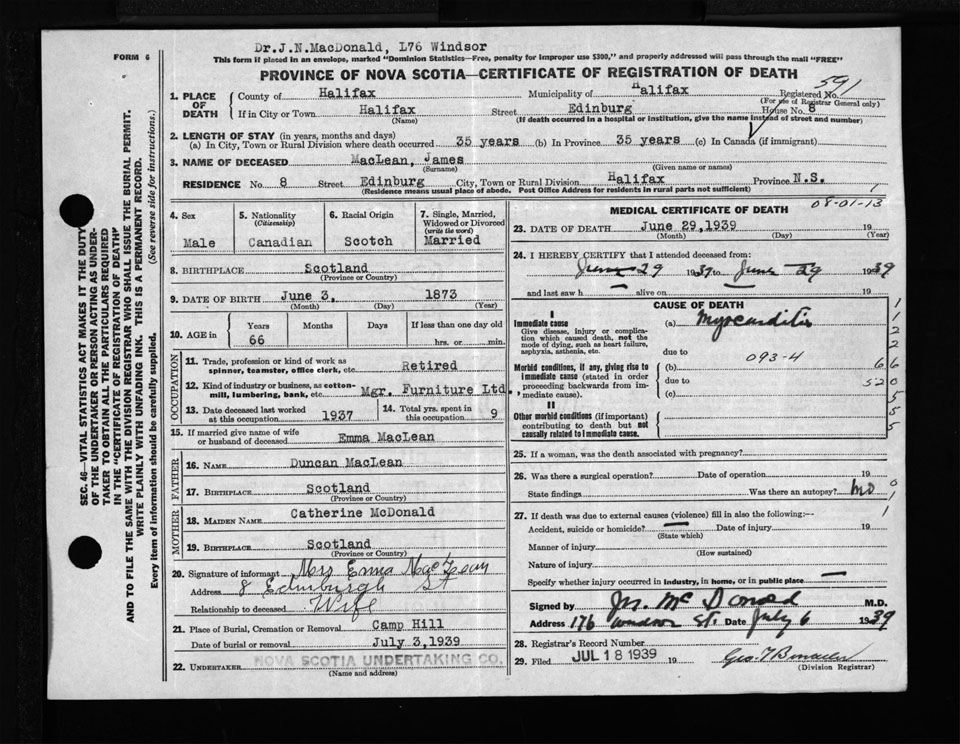 Dr.J.N.MacDonald, L76 Windsor
FORM 6
This form if placed in an envelope, marked "Dominion Statistics—Free, penalty for improper use $300," and properly addressed will pass through the mail "FREE"
PROVINCE OF NOVA SCOTIA—CERTIFICATE OF REGISTRATION OF DEATH
591
1. PLACE OF DEATH County of Halifax Municipality of Halifax Registered No.
(For use of Registrar General only)
If in City or Town Halifax Street Edinburg House No. 8
(Name) (If death occurred in a hospital or institution, give the name instead of street and number)
2. LENGTH OF STAY (in years, months and days)
(a) In City, Town or Rural Division where death occurred 35 years (b) In Province 35 years (c) In Canada (if immigrant)
3. NAME OF DECEASED MacLean, James
(Surname) (Given name or names)
RESIDENCE No. 8 Street Edinburg City, Town or Rural Division Halifax Province N.S.
(Residence means usual place of abode. Post Office Address for residents in rural parts not sufficient) 1
4. Sex Male
5. Nationality (Citizenship) Canadian
6. Racial Origin Scotch
7. Single, Married, Widowed or Divorced (write the word) Married
8. BIRTHPLACE Scotland
(Province or Country)
9. DATE OF BIRTH June 3, 1873
(Month) (Day) (Year)
10. AGE in Years Months Days If less than one day old
66 hrs. or min.
OCCUPATION
11. Trade, profession or kind of work as spinner, teamster, office clerk, etc. Retired
12. Kind of industry or business, as cotton-mill, lumbering, bank, etc. Mgr. Furniture Ltd.
13. Date deceased last worked at this occupation 1937
14. Total yrs. spent in this occupation 9
15. If married give name of wife or husband of deceased Emma MacLean
FATHER
16. NAME Duncan MacLean
17. BIRTHPLACE Scotland
(Province or Country)
MOTHER
18. MAIDEN NAME Catherine McDonald
19. BIRTHPLACE Scotland
(Province or Country)
20. Signature of informant Mrs Emma MacLean
Address 8 Edinburgh St
Relationship to deceased Wife
21. Place of Burial, Cremation or Removal Camp Hill
Date of burial or removal July 3,1939
22. UNDERTAKER NOVA SCOTIA UNDERTAKING CO.
(Name and address)
08-01-13
MEDICAL CERTIFICATE OF DEATH
23. DATE OF DEATH June 29,1939 19
(Month) (Day) (Year)
24. I HEREBY CERTIFY that I attended deceased from:
June 29 1939 to June 29 1939
and last saw h alive on 19
CAUSE OF DEATH
I
Immediate cause (a) Myocarditis
Give disease, injury or complication which caused death, not the mode of dying, such as heart failure, asphyxia, asthenia, etc.
due to 093-4
Morbid conditions, if any, giving rise to immediate cause (stated in order proceeding backwards from immediate cause). (b)
due to
(c)
II
Other morbid conditions (if important) contributing to death but not causally related to immediate cause.
1
1
2
2
6 6
52 0
5
5
5
25. If a woman, was the death associated with pregnancy?
26. Was there a surgical operation? Date of operation 19
State findings Was there an autopsy? no
0
1
27. If death was due to external causes (violence) fill in also the following:— 1
Accident, suicide or homicide? Date of injury 19
(State which)
Manner of injury
(How sustained)
Nature of injury
Specify whether injury occurred in industry, in home, or in public place
Signed by Jn. McDonald M.D.
Address 176 Windsor St. Date July 6 1939
28. Registrar's Record Number
29. Filed JUL 18 1939 19
(Division Registrar)
SEC. 46—VITAL STATISTICS ACT MAKES IT THE DUTY
OF THE UNDERTAKER OR PERSON ACTING AS UNDER-
TAKER TO OBTAIN ALL THE PARTICULARS REQUIRED
IN THE "CERTIFICATE OF REGISTRATION OF DEATH"
AND TO FILE THE SAME WITH THE DIVISION REGISTRAR WHO SHALL ISSUE THE BURIAL PERMIT.
WRITE PLAINLY WITH UNFADING INK. THIS IS A PERMANENT RECORD.
Every item of information should be carefully supplied. (See reverse side for instructions.)